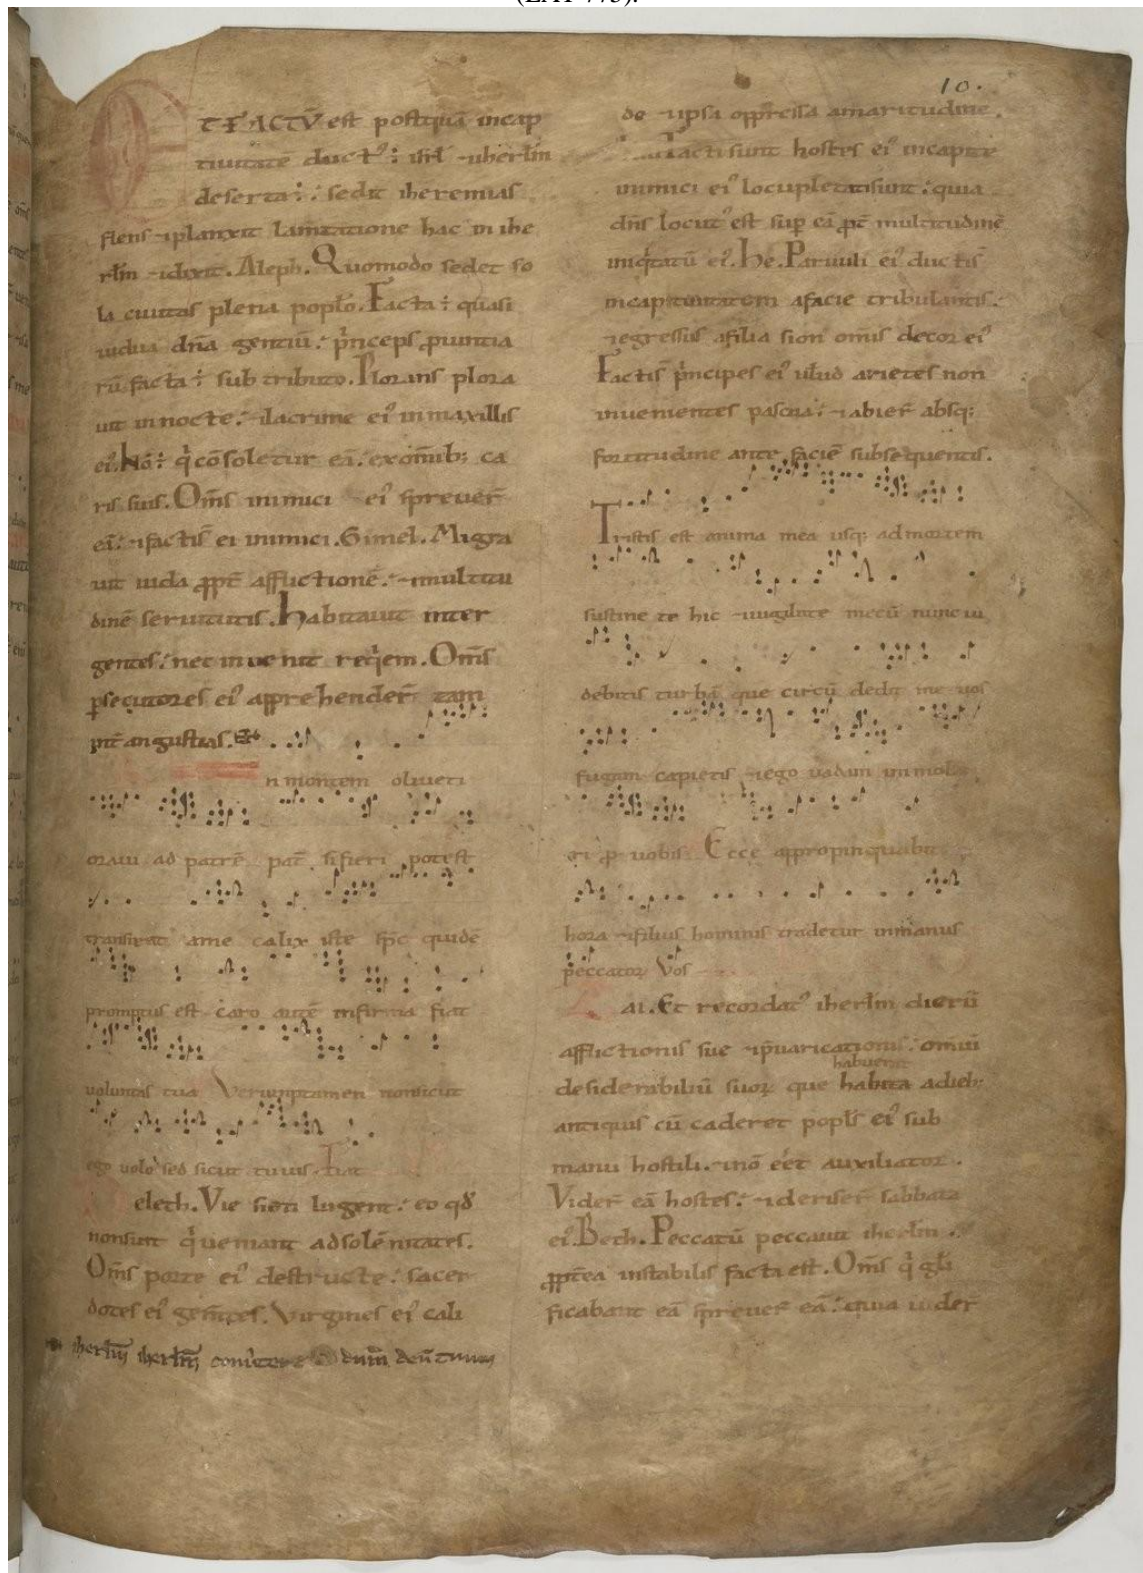 (LAT 775).
10.
ET FACTŪ est postquā incap
tiuitate duct᷒ ÷ isrl ⁊ iherlm̄
deserta ÷. sedit iheremias
flens ⁊ planxit lam̄tatione hac in ihe
rlm̄ ⁊ dixit. Aleph. Quomodo sedet so
la ciuitas plena poplo. Facta ÷ quasi
uidua dn̄a gentiū. p̄nceps ꝓuintia
rū facta ÷ sub tributo. Plorans plora
uit in nocte. ⁊ lacrime ei᷒ in maxillis
ei᷒. Nō ÷ q̇ cōsoletur eā. ex om̄ib; ca
ris suis. Om̄s inimici ei᷒ spreuer̄
eā. ⁊ facti s̄ ei inimici. Gimel. Migra
uit iuda ꝓpt̄ afflictionē. ⁊ multitu
dinē seruitutis. Habitauit inter
gentes. nec inuenit req̇em. Om̄s
ꝑsecutores ei᷒ apprehender̄ eam
int̄ angustias.
n montem oliueti
oraui ad patrē pat̄ si fieri potest
transeat a me calix iste sp̄c quidē
promptus est caro autē infirma fiat
uoluntas tua Veruṃptamen non sicut
ego uolo sed sicut tu uis. Fiat
eleth. Vie sion lugent. eo qđ
non sint q̇ ueniant ad solēnitates.
Om̄s porte ei᷒ destructe. sacer
dotes ei᷒ gem̄tes. Virgines ei᷒ cali
iherlm̄ iherlm̄ conu̇tere dnm̄ deū tuum
de ⁊ ipsa oppressa amaritudine.
Facti sunt hostes ei᷒ in capite
inimici ei᷒ locupletati sunt. quia
dn̄s locut᷒ est sup eā ꝓpt̄ multitudinē
iniq̇tatū ei᷒. he. Paruuli ei᷒ ducti s̄
in captiuitatem a facie tribulantis.
⁊ egressus a filia sion om̄is decor ei᷒
Facti s̄ p̄ncipes ei᷒ uelud arietes non
inuenientes pascua. ⁊ abier̄ absq;
fortitudine ante faciē subsequentis.
Tristis est anima mea usq; ad mortem
sustine te hic ⁊ uigilate mecū nunc ui
debitis turbā que circū dedit me uos
fugam capietis ⁊ ego uadam immola
ri ꝓ uobis Ecce appropinquabit
hora ⁊ filius hominis tradetur in manus
peccatoꝝ Vos
ai. Et recordat᷒ iherlm̄ dierū
afflictionis sue ⁊ p̄uaricationis. omiū
habuerat
desiderabiliū suoꝝ que habita a dieb;
antiquis cū caderet popl̄s ei᷒ sub
manu hostili. ⁊ nō eēt auxiliator.
Vider̄ eā hostes. ⁊ deriser̄ sabbata
ei᷒. Beth. Peccatū peccauit iherlm̄.
ꝓpt̄ea instabilis facta est. Om̄s q̇ gl̄i
ficabant eā spreuer̄ eā. quia uider̄